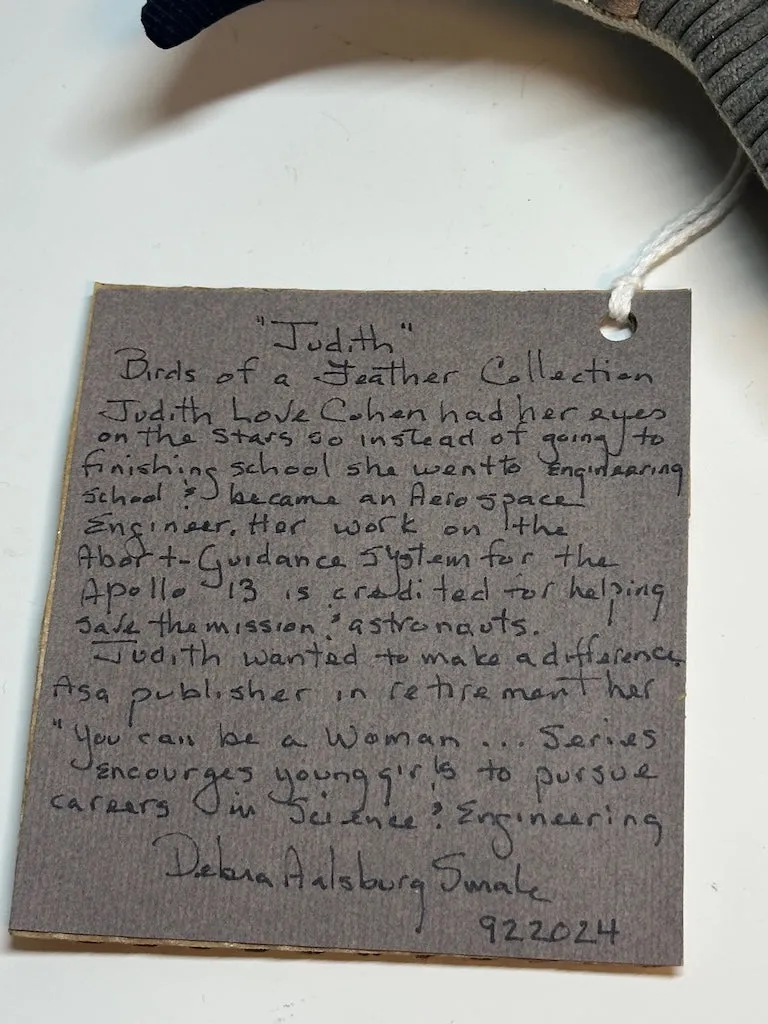 "Judith"
Birds of a Feather Collection
Judith Love Cohen had her eyes
on the stars so instead of going to
finishing school she went to engineering
school & became an Aerospace
Engineer. Her work on the
Abort-Guidance System for the
Apollo 13 is credited for helping
save the mission & astronauts.
Judith wanted to make a difference.
As a publisher in retirement her
"You can be a Woman ... Series
encourges young girls to pursue
careers in Science & Engineering
Debra Aalsburg Smale
922024